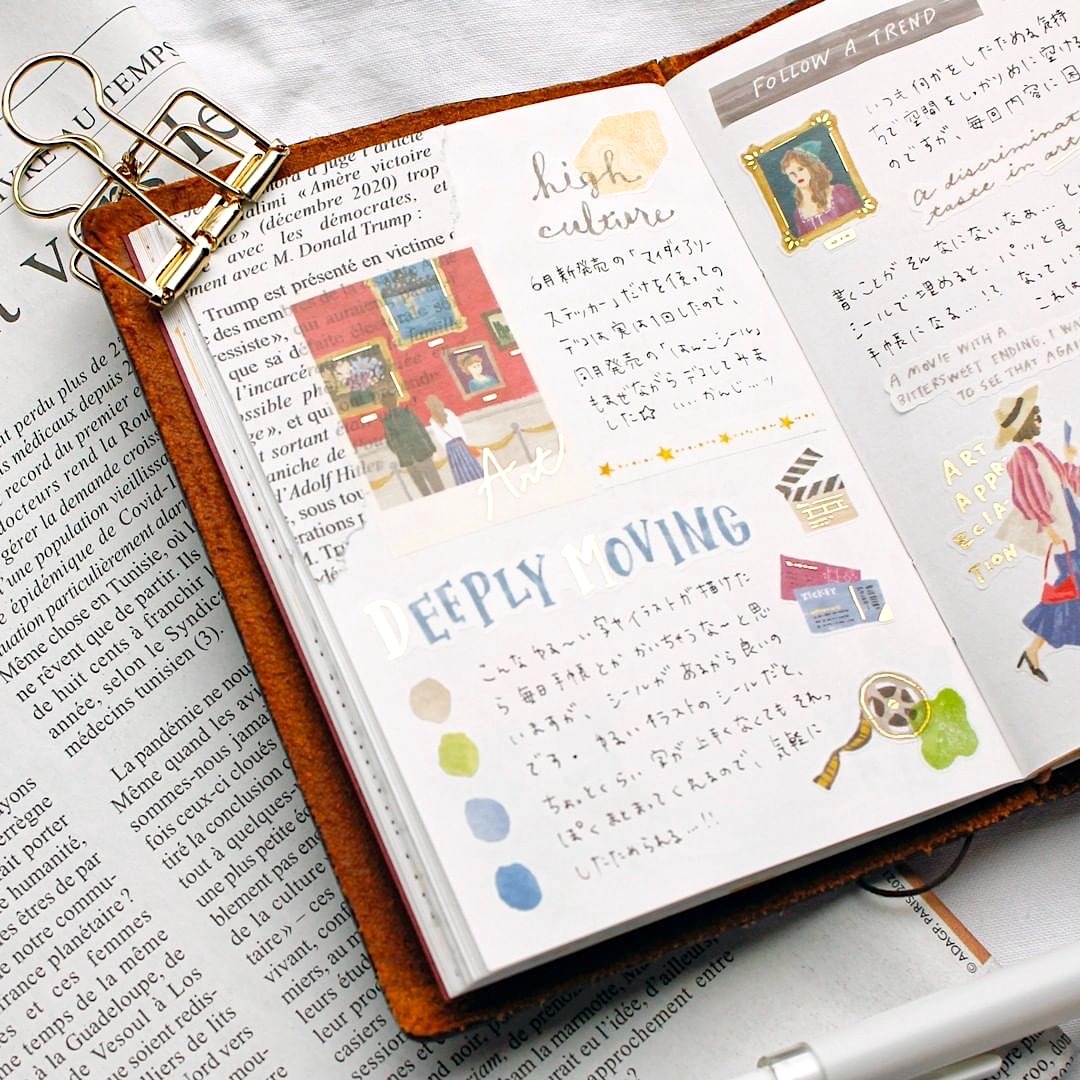 high
culture
6月新発売の「マイダイアリー
ステッカー」だけを使っての
デコは実は1回したので、
同月発売の「はんこシール」
もまぜながらデコしてみま
した☆ いいかんじ…ッ
Art
DEEPLY MOVING
こんなゆる〜い字やイラストが描けた
ら毎日手帳とかかいちゃうな〜と思
いますが、シールがあるから良いの
です。ゆるいイラストのシールだと、
ちょっとくらい字が上手くなくてもそれっ
ぽくまとまってくれるので、気軽に
したためられる…!!
TICKET
FOLLOW A TREND
いつも何かをしたためる気持
ちで空間をしっかりめに空ける
のですが、毎回内容に困
a discriminat
taste in art
書くことがそんなにないなぁ… と
シールで埋めると、パッと見
手帳になる…!? なってい
これは
A MOVIE WITH A
BITTERSWEET ENDING. I WA
TO SEE THAT AGAI
ART
APPR
ECIA
TION
« Amère victoire
(décembre 2020) trop
avec les démocrates, et
ment avec M. Donald Trump :
Trump est présenté en victime
des mem
qui auraie
que sa dé
l'incarcér
ossible
ge », et qui
t sortant
aniche de
d'Adolf Hitle
, sous tou
érations
M. Tru
Mê
AU TEMPS
perdu plus de
médicaux depuis
record du premier e
octeurs rend la Rou
gérer la demande croiss
'une population vieilliss
épidémique de Covid-
uation particulièrement alar
Même chose en Tunisie, où
ne rêvent que de partir. Ils
de huit cents à franchir
année, selon le Syndica
médecins tunisien (3).
La pandémie nous
Même quand les avi
sommes-nous jama
fois ceux-ci cloués
tiré la conclusion
tout à quelques-
une plus petite é
blement pas en
de la culture
taire» – ces
vivant, com
miers, au m
leurs étu
leur proc
casiers
session
et noir,
ayons
errègne
ait porter
humanité,
s êtres de par
e notre commu-
rance planétaire?
s et ces femmes
temps de la même
à la Guadeloupe, de
Vesoul à Los
ue soient redis-
de lits
ord vers
nou-
la marmoite, M
urait eu l'idée, d'ailleurs,
rapprochement entre
© ADAGP, PARIS 202